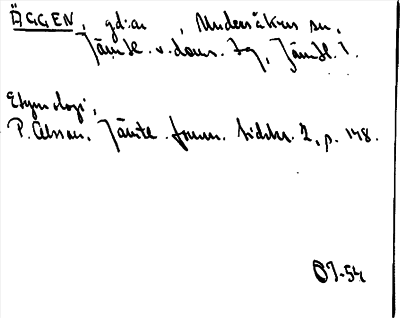 ÄGGEN, gd:ar, Undersåkers sn,
Jämtl. v. doms. tg, Jämtl. l.
Etymologi,
P. Olsson, Jämtl. fornm. tidskr. 2, p. 148.
OJ-54